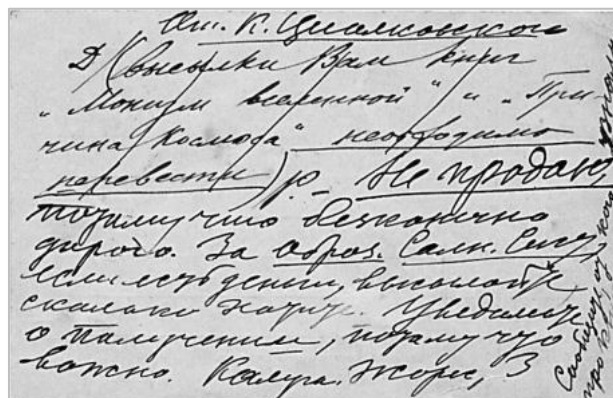 От К. Циолковского
Д/ (высылки Вам книг
„Монизм вселенной“ и „При-
чина Космоса“ необходимо
перевести) р. Не продаю,
потому что безконечно
дорого. За Образ. Солн. Сист,
если есть деньги, высылайте
сколько хотите. Уведомьте
о получении, потому что
важно. Калуга. Жорес, 3
Сообщите, от кого узнали
про